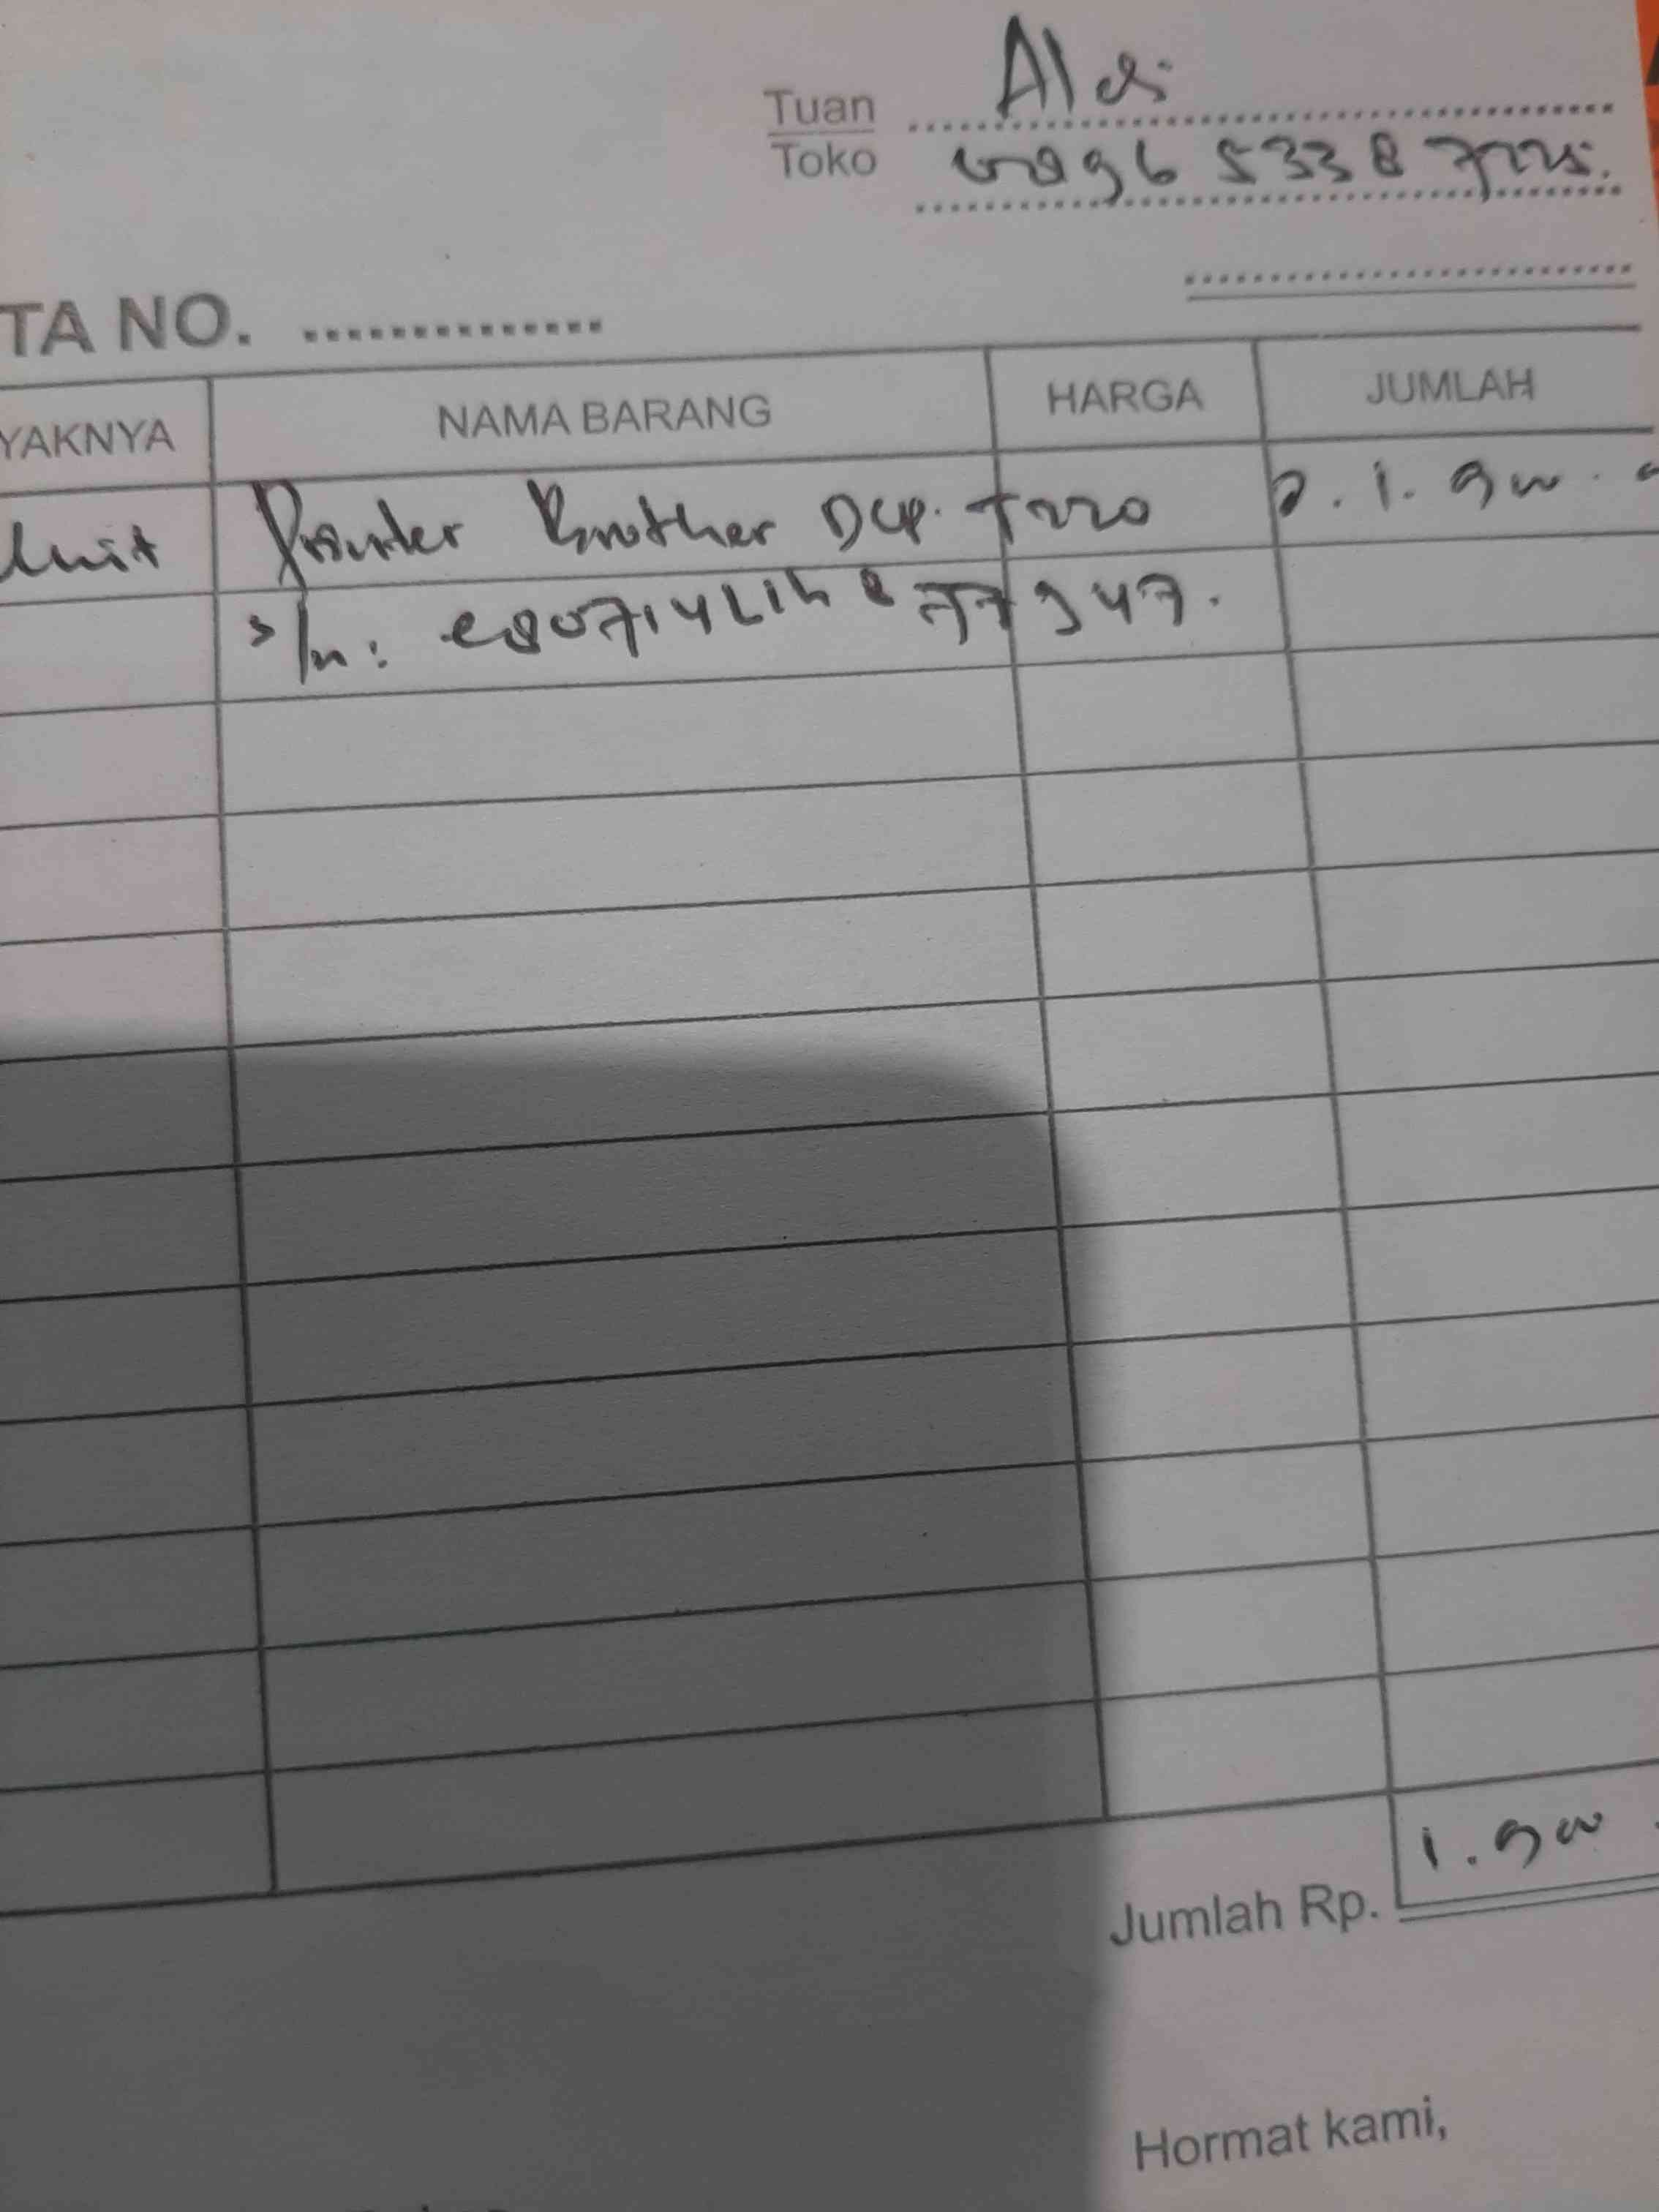 Tuan Aldi
Toko 0896 5338 7225.
TA NO. ..............
YAKNYA NAMA BARANG HARGA JUMLAH
Unit Printer Brother DCP. T220 1.900
s/n: E80714L1H877347.
Jumlah Rp. 1.900
Hormat kami,